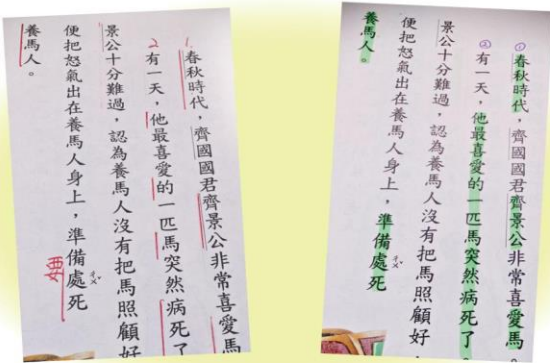 1.春秋時代，齊國國君齊景公非常喜愛馬
2有一天，他最喜愛的一匹馬突然病死了
景公十分難過，認為養馬人沒有把馬照顧好
便把怒氣出在養馬人身上，準備處ㄔㄨˇ死
要
養馬人。
①春秋時代，齊國國君齊景公非常喜愛馬。
②有一天，他最喜愛的一匹馬突然病死了。
景公十分難過，認為養馬人沒有把馬照顧好
便把怒氣出在養馬人身上，準備處ㄔㄨˇ死
養馬人。